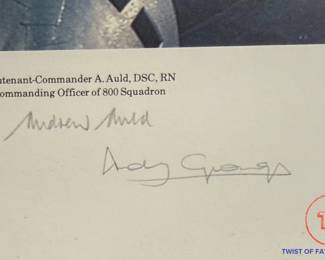 utenant-Commander A. Auld, DSC, RN
ommanding Officer of 800 Squadron
Andrew Auld
Andy
TWIST OF FA